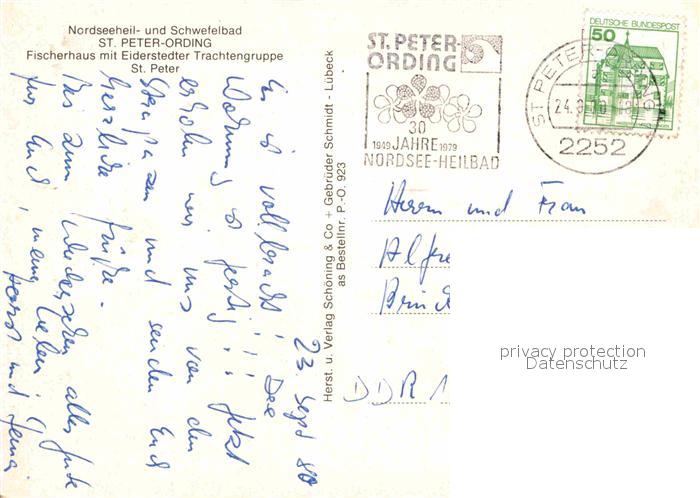 Nordseeheil- und Schwefelbad
ST. PETER-ORDING
Fischerhaus mit Eiderstedter Trachtengruppe
St. Peter
23. Sept 80
Es ist vollbracht! Die
Wohnung ist fertig!!! Jetzt
erholen wir uns von den
Strapazen und senden Euch
herzliche Grüße.
Bis zum Wiedersehen alles Gute
für Euch, meine Lieben,
Horst und
Herst. u. Verlag Schöning & Co + Gebrüder Schmidt - Lübeck
as Bestellnr. P.-O. 923
ST. PETER-
ORDING
30
1949 JAHRE 1979
NORDSEE-HEILBAD
ST. PETER-ORDING
2252
DEUTSCHE BUNDESPOST
50
Herrn und Frau
Alfre
DDR
privacy protection
Datenschutz